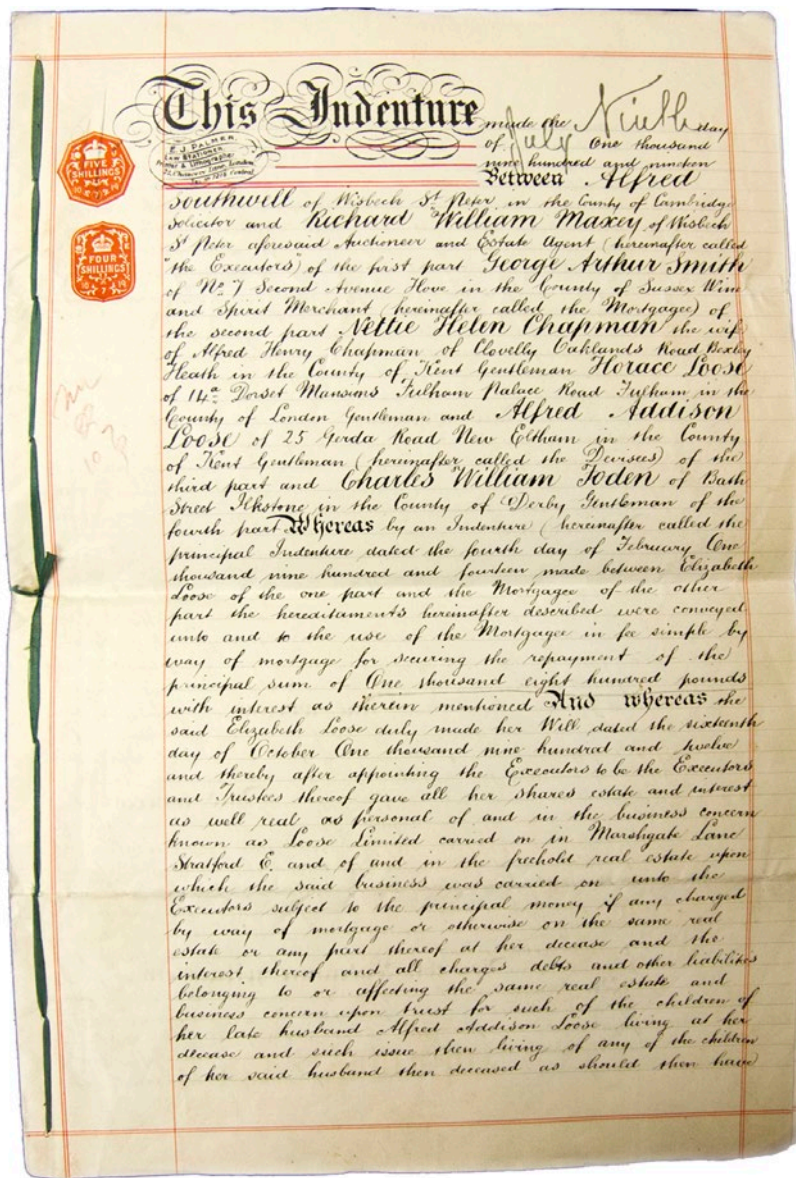 This Indenture made the Ninth day
of July One thousand
nine hundred and nineteen
Between Alfred
E. J. PALMER,
Law Stationer
Printer & Lithographer
Chancery Lane, London
Central
FIVE
SHILLINGS
10 7 19
FOUR
SHILLINGS
10 7 19
Southwell of Wisbech St Peter in the County of Cambridge
Solicitor and Richard William Maxey of Wisbech
St Peter aforesaid Auctioneer and Estate Agent (hereinafter called
"the Executors") of the first part George Arthur Smith
of No 7 Second Avenue Hove in the County of Sussex Wine
and Spirit Merchant (hereinafter called the Mortgagee) of
the second part Nettie Helen Chapman the wife
of Alfred Henry Chapman of Clovelly Oaklands Road Bexley
Heath in the County of Kent Gentleman Horace Loose
of 14a Dorset Mansions Fulham Palace Road Fulham in the
County of London Gentleman and Alfred Addison
Loose of 25 Gerda Road New Eltham in the County
of Kent Gentleman (hereinafter called the Devisees) of the
third part and Charles William Foden of Bath
Street Ilkstone in the County of Derby Gentleman of the
fourth part Whereas by an Indenture (hereinafter called the
principal Indenture dated the fourth day of February One
thousand nine hundred and fourteen made between Elizabeth
Loose of the one part and the Mortgagee of the other
part the hereditaments hereinafter described were conveyed
unto and to the use of the Mortgagee in fee simple by
way of mortgage for securing the repayment of the
principal sum of One thousand eight hundred pounds
with interest as therein mentioned And whereas the
said Elizabeth Loose duly made her Will dated the sixteenth
day of October One thousand nine hundred and twelve
and thereby after appointing the Executors to be the Executors
and Trustees thereof gave all her shares estate and interest
as well real as personal of and in the business concern
known as Loose Limited carried on in Marshgate Lane
Stratford E. and of and in the freehold real estate upon
which the said business was carried on unto the
Executors subject to the principal money if any charged
by way of mortgage or otherwise on the same real
estate or any part thereof at her decease and the
interest thereof and all charges debts and other liabilities
belonging to or affecting the same real estate and
business concern upon trust for such of the children of
her late husband Alfred Addison Loose living at her
decease and such issue then living of any of the children
of her said husband then deceased as should then have